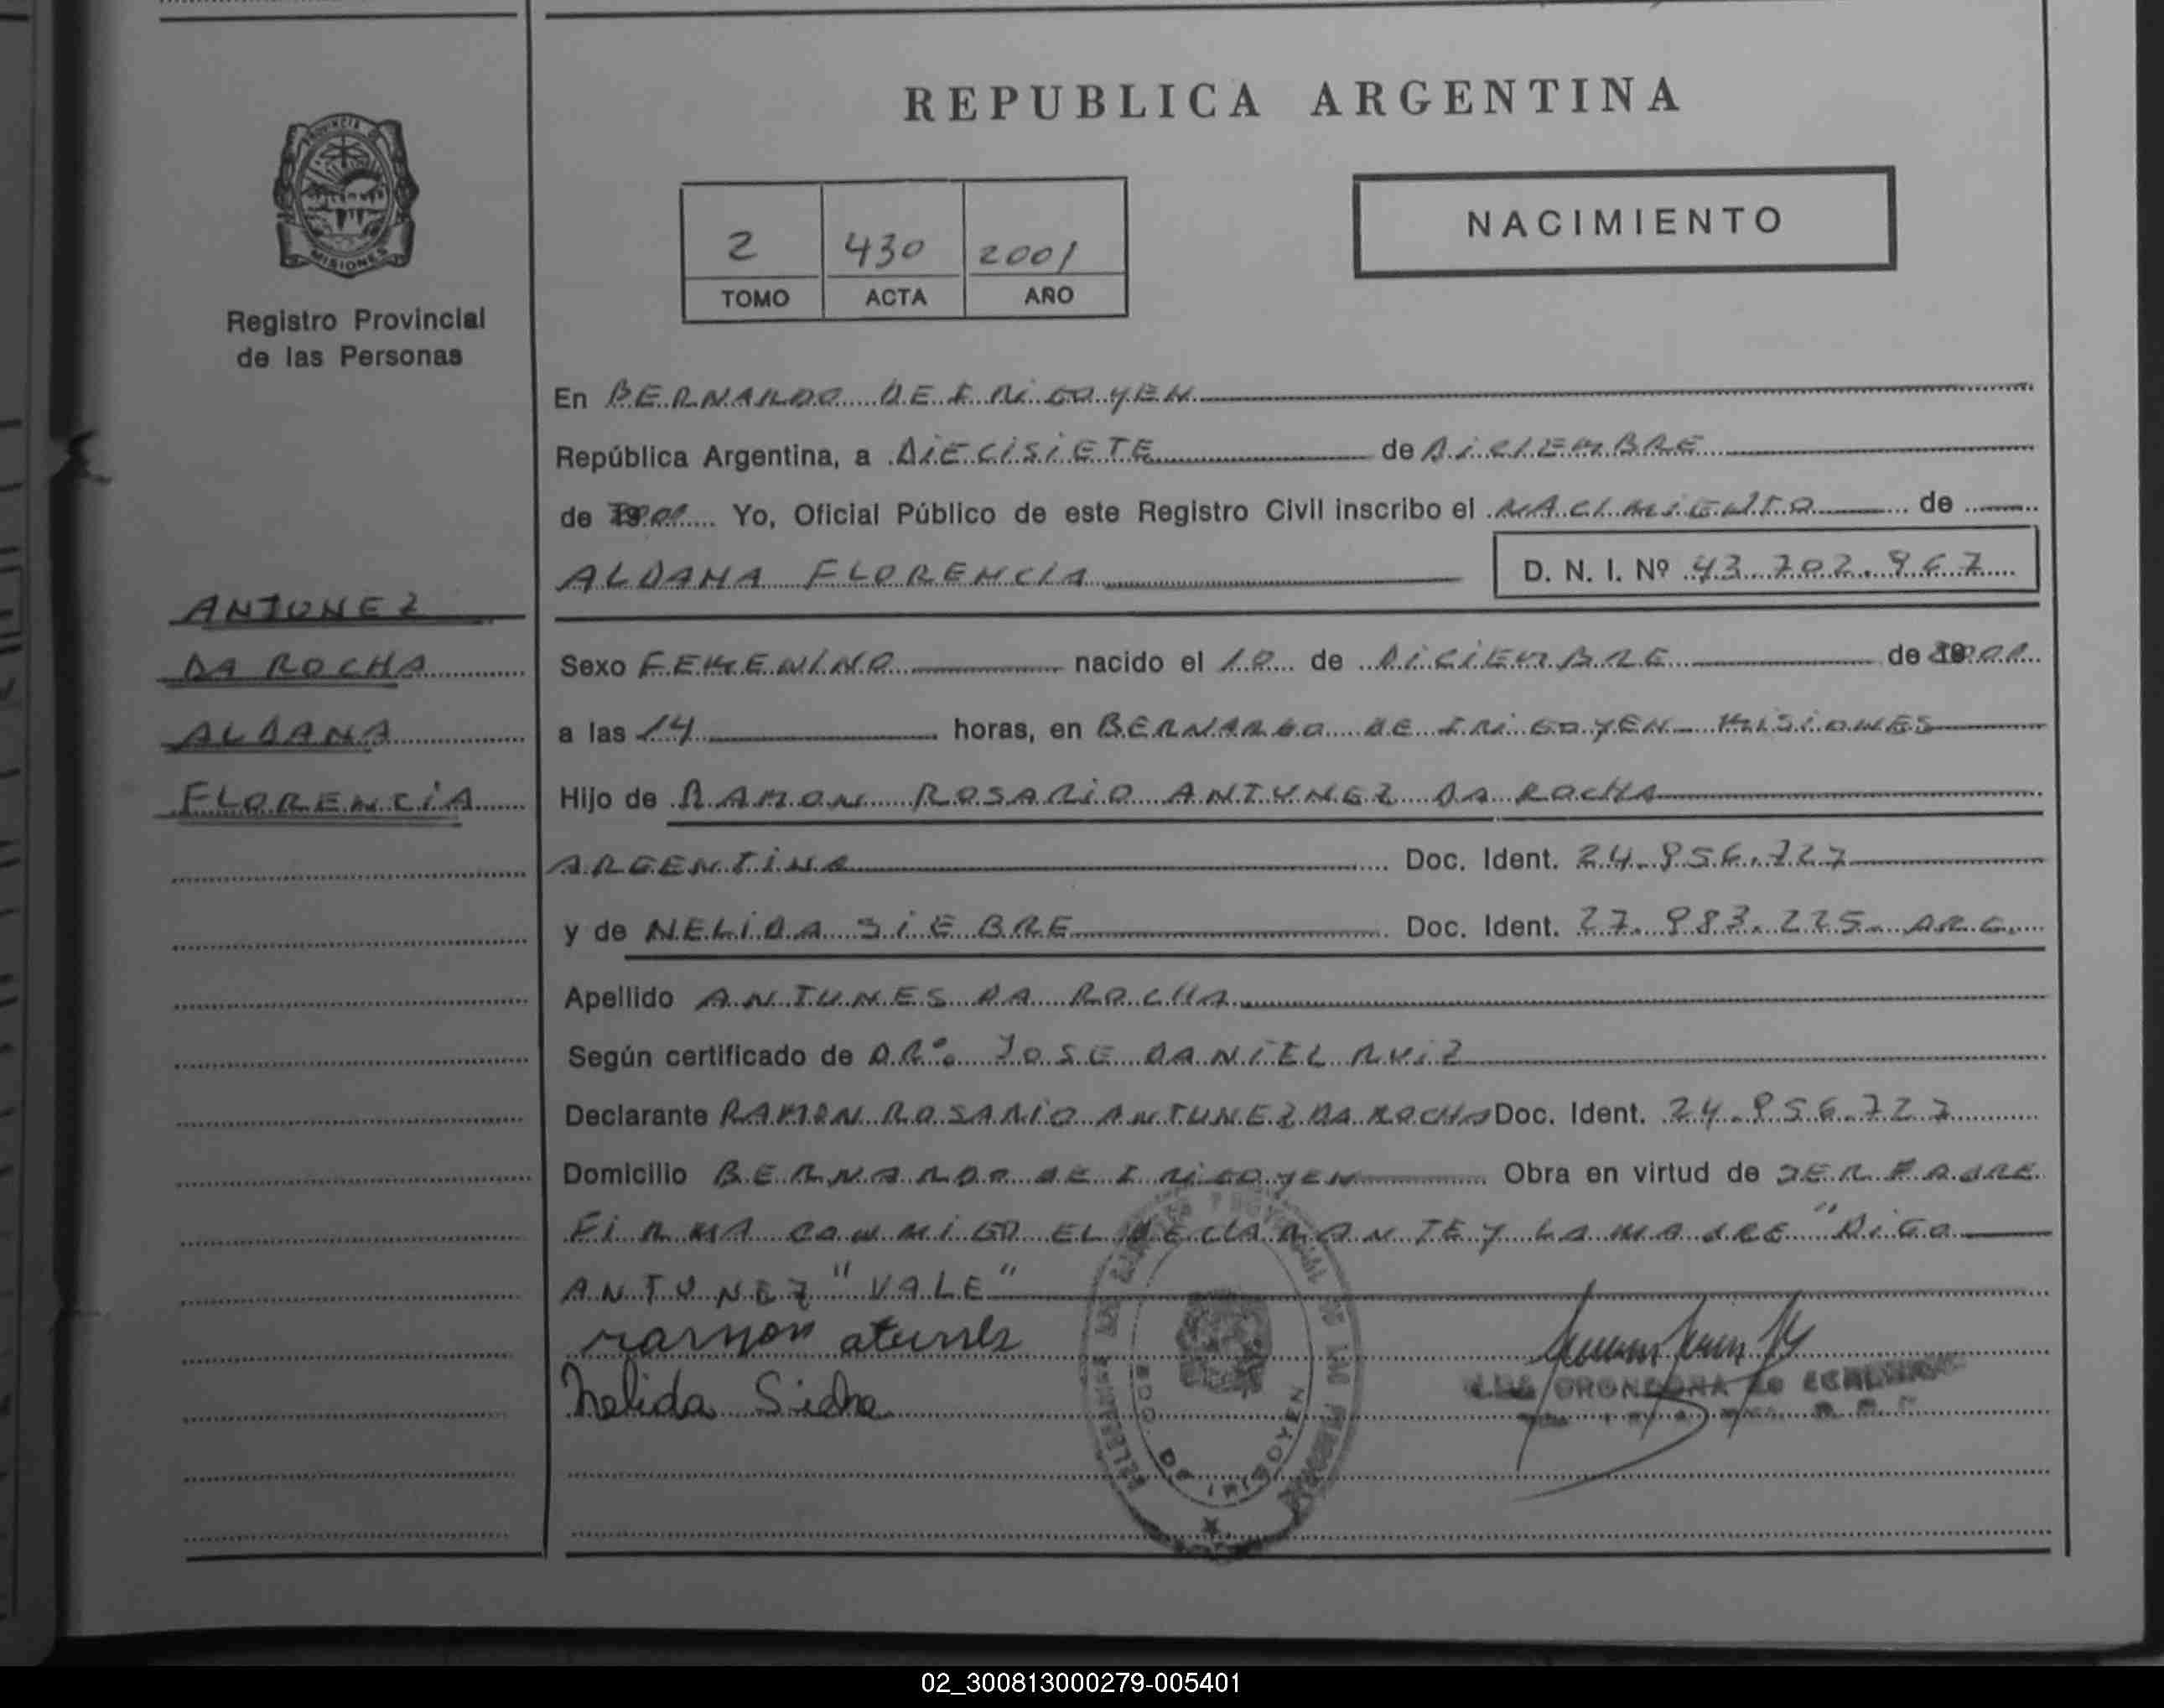 REPUBLICA ARGENTINA
PROVINCIA DE
MISIONES
Registro Provincial
de las Personas
2 430 2001
TOMO ACTA AÑO
NACIMIENTO
En BERNARDO DE IRIGOYEN
República Argentina, a DIECISIETE de DICIEMBRE
de 2001 Yo, Oficial Público de este Registro Civil inscribo el NACIMIENTO de
ALDANA FLORENCIA D. N. I. Nº 43.702.967
ANTUNEZ
DA ROCHA
ALDANA
FLORENCIA
Sexo FEMENINO nacido el 10 de DICIEMBRE de 2001
a las 14 horas, en BERNARDO DE IRIGOYEN MISIONES
Hijo de RAMON ROSARIO ANTUNEZ DA ROCHA
ARGENTINA Doc. Ident. 24.956.727
y de NELIDA SIEBRE Doc. Ident. 27.983.225 ARG.
Apellido ANTUNES DA ROCHA
Según certificado de DR. JOSE DANIEL RUIZ
Declarante RAMON ROSARIO ANTUNEZ DA ROCHA Doc. Ident. 24.956.727
Domicilio BERNARDO DE IRIGOYEN Obra en virtud de SER PADRE
FIRMA CONMIGO EL DECLARANTE Y LA MADRE "DIGO
ANTUNEZ" VALE"
ramon atunes
Nelida Siebre
BDO. DE IRIGOYEN
02_300813000279-005401